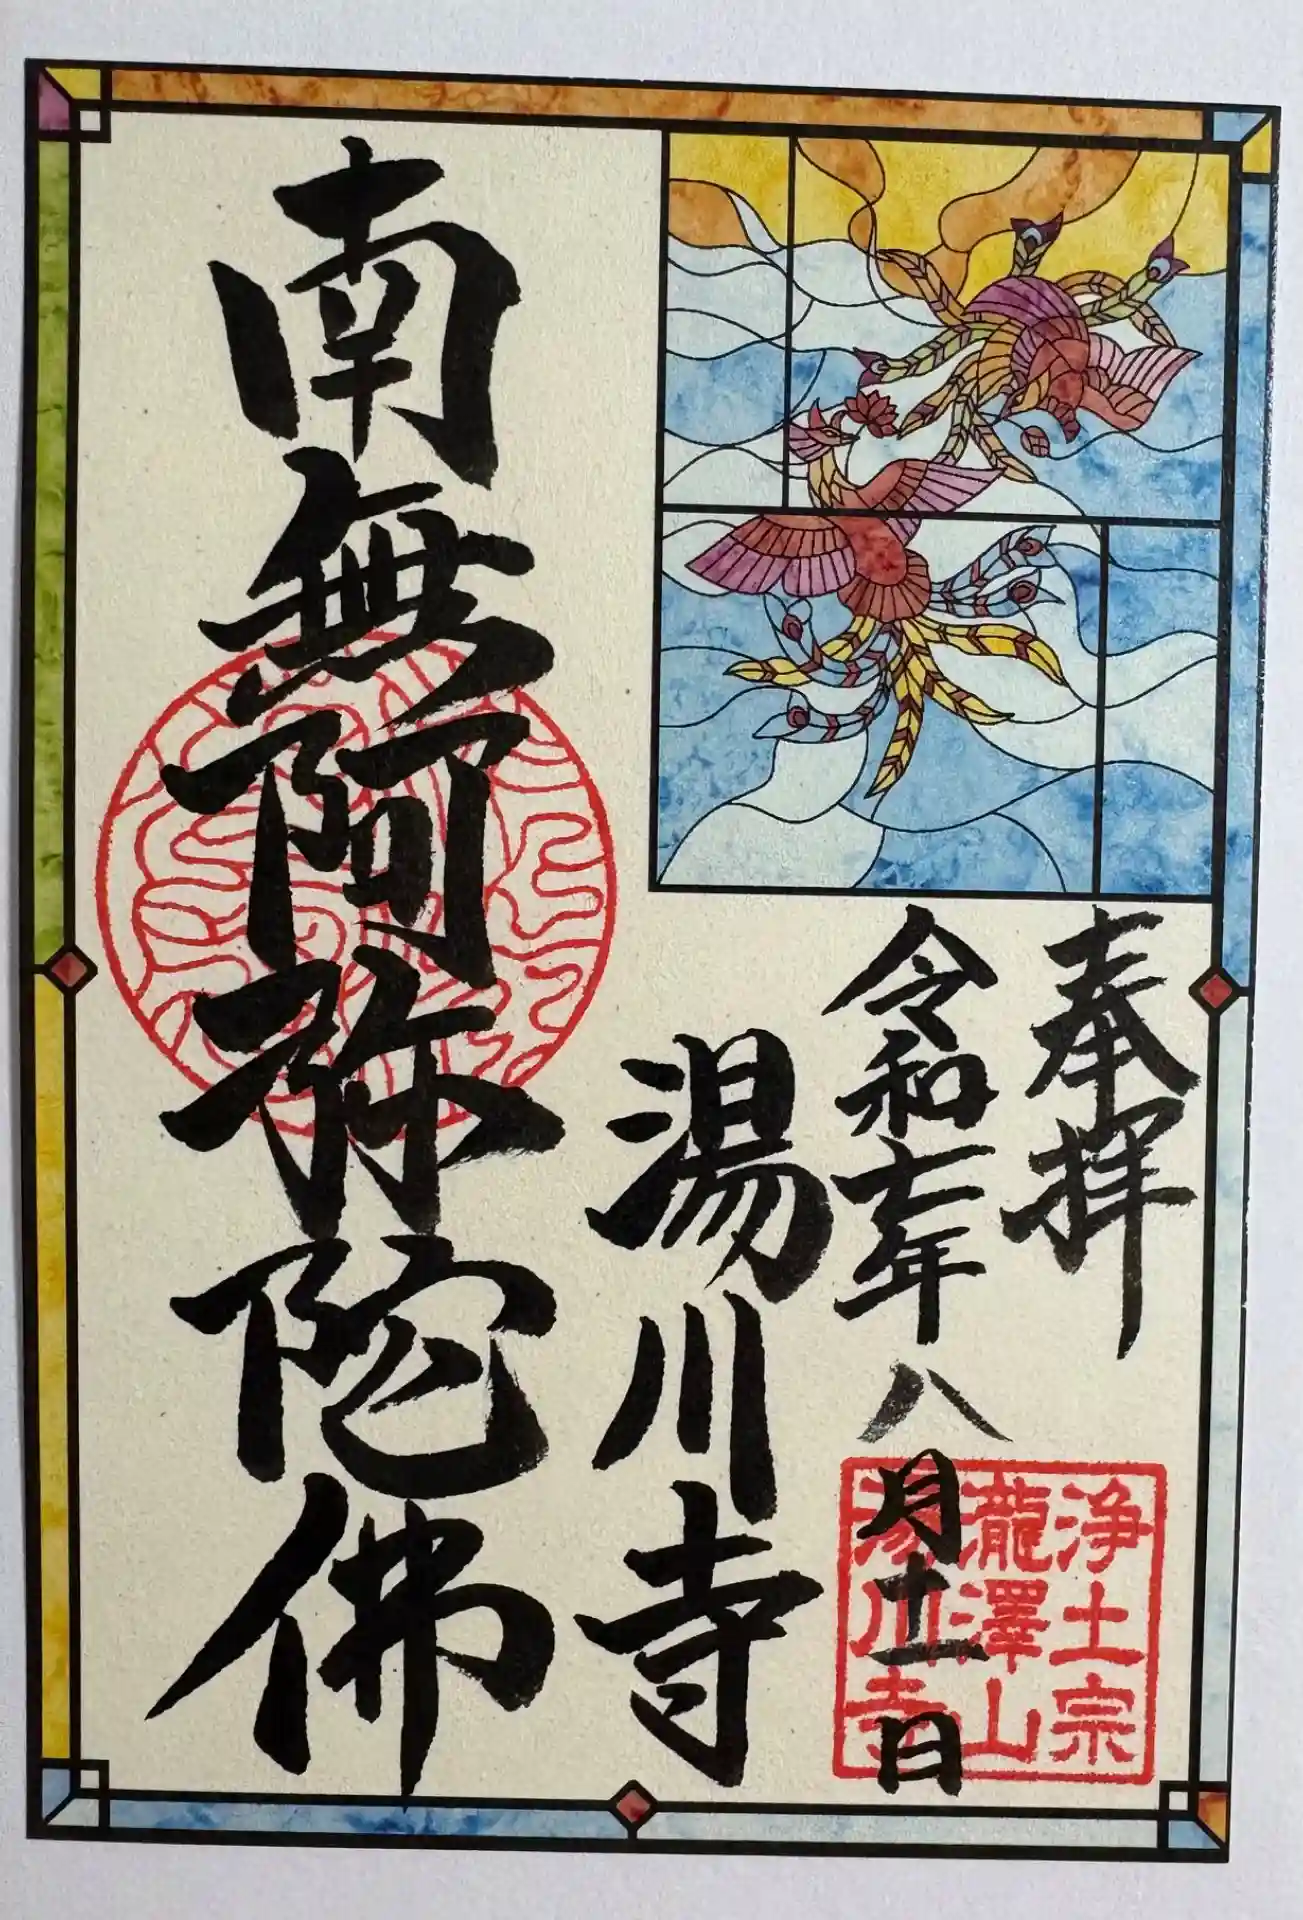 奉拝
令和七年八月十一日
湯川寺
南無阿弥陀佛
浄土宗
瀧澤山
湯川寺